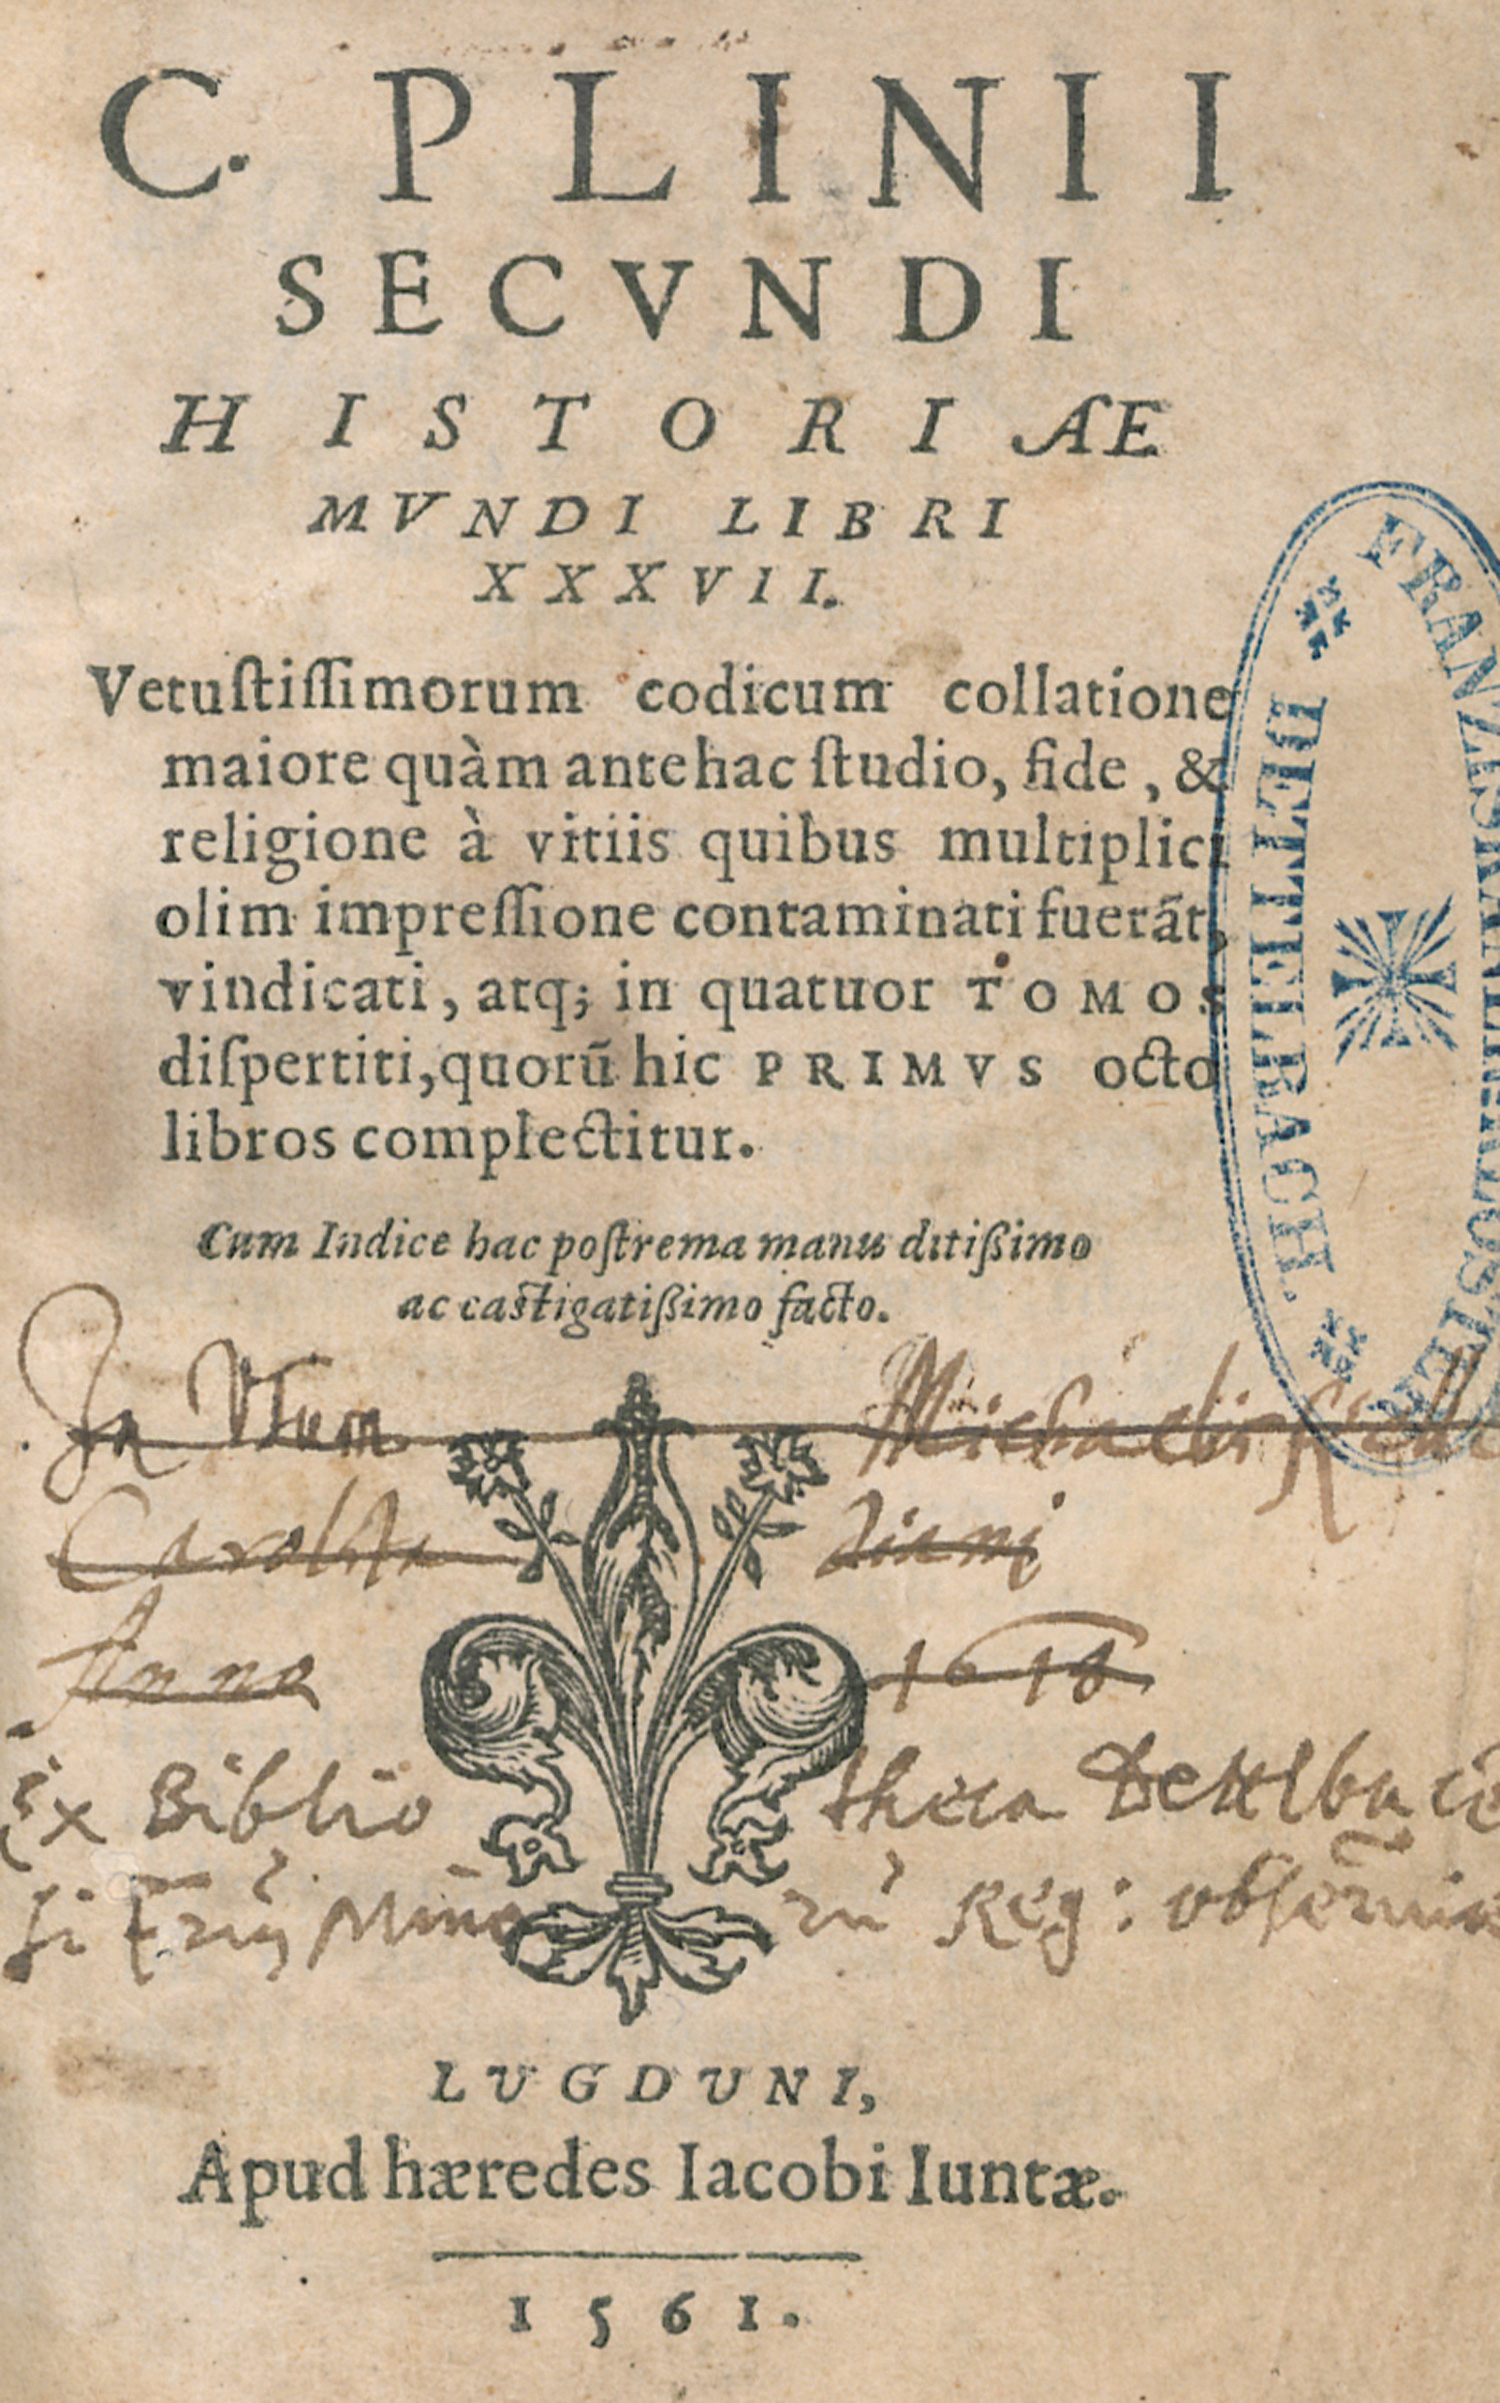 C. PLINII
SECVNDI
HISTORIÆ
MVNDI LIBRI
XXXVII.
Vetuſtiſſimorum codicum collatione
maiore quàm antehac ſtudio, fide, &
religione à vitiis quibus multiplici
olim impreſſione contaminati fuerãt,
vindicati, atq; in quatuor TOMOS
diſpertiti, quorũ hic PRIMVS octo
libros complectitur.
Cum Indice hac poſtrema manu ditißimo
ac caſtigatißimo facto.
In Vſum Michaelis
Caroloſta diani
Anno 1618
Ex Biblio theca
Reg:
LUGDUNI,
Apud hæredes Iacobi Iuntæ.
1561.
FRANZISKANERKLOSTER
DETTELBACH.